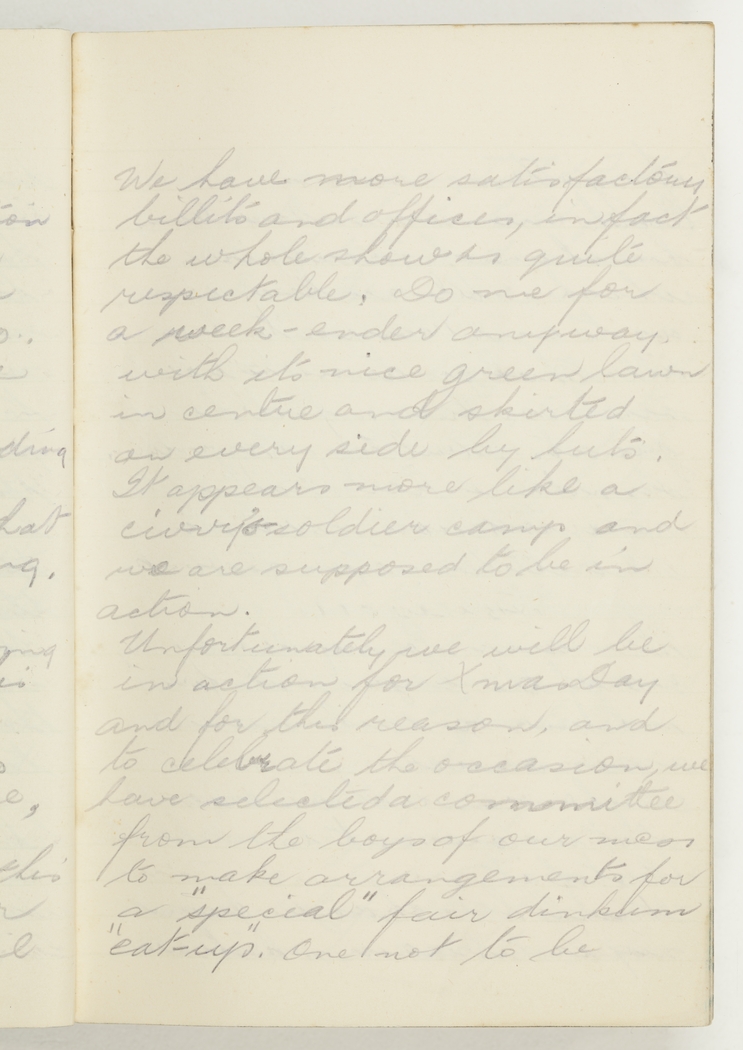 ion
We have more satisfactory
billits and offices, in fact
the whole show is quite
respectable. Do me for
a week-ender anyway.
with it's nice green lawn
in centre and skirted
on every side by huts.
It appears more like a
civvy soldier camp and
we are supposed to be in
action.
Unfortunately we will be
in action for Xmas Day
and for this reason, and
to celebrate the occasion, we
have selected a committee
from the boys of our mess
to make arrangements for
a "special" fair dinkum
"eat-up". One not to be
ding
hat
ng.
this